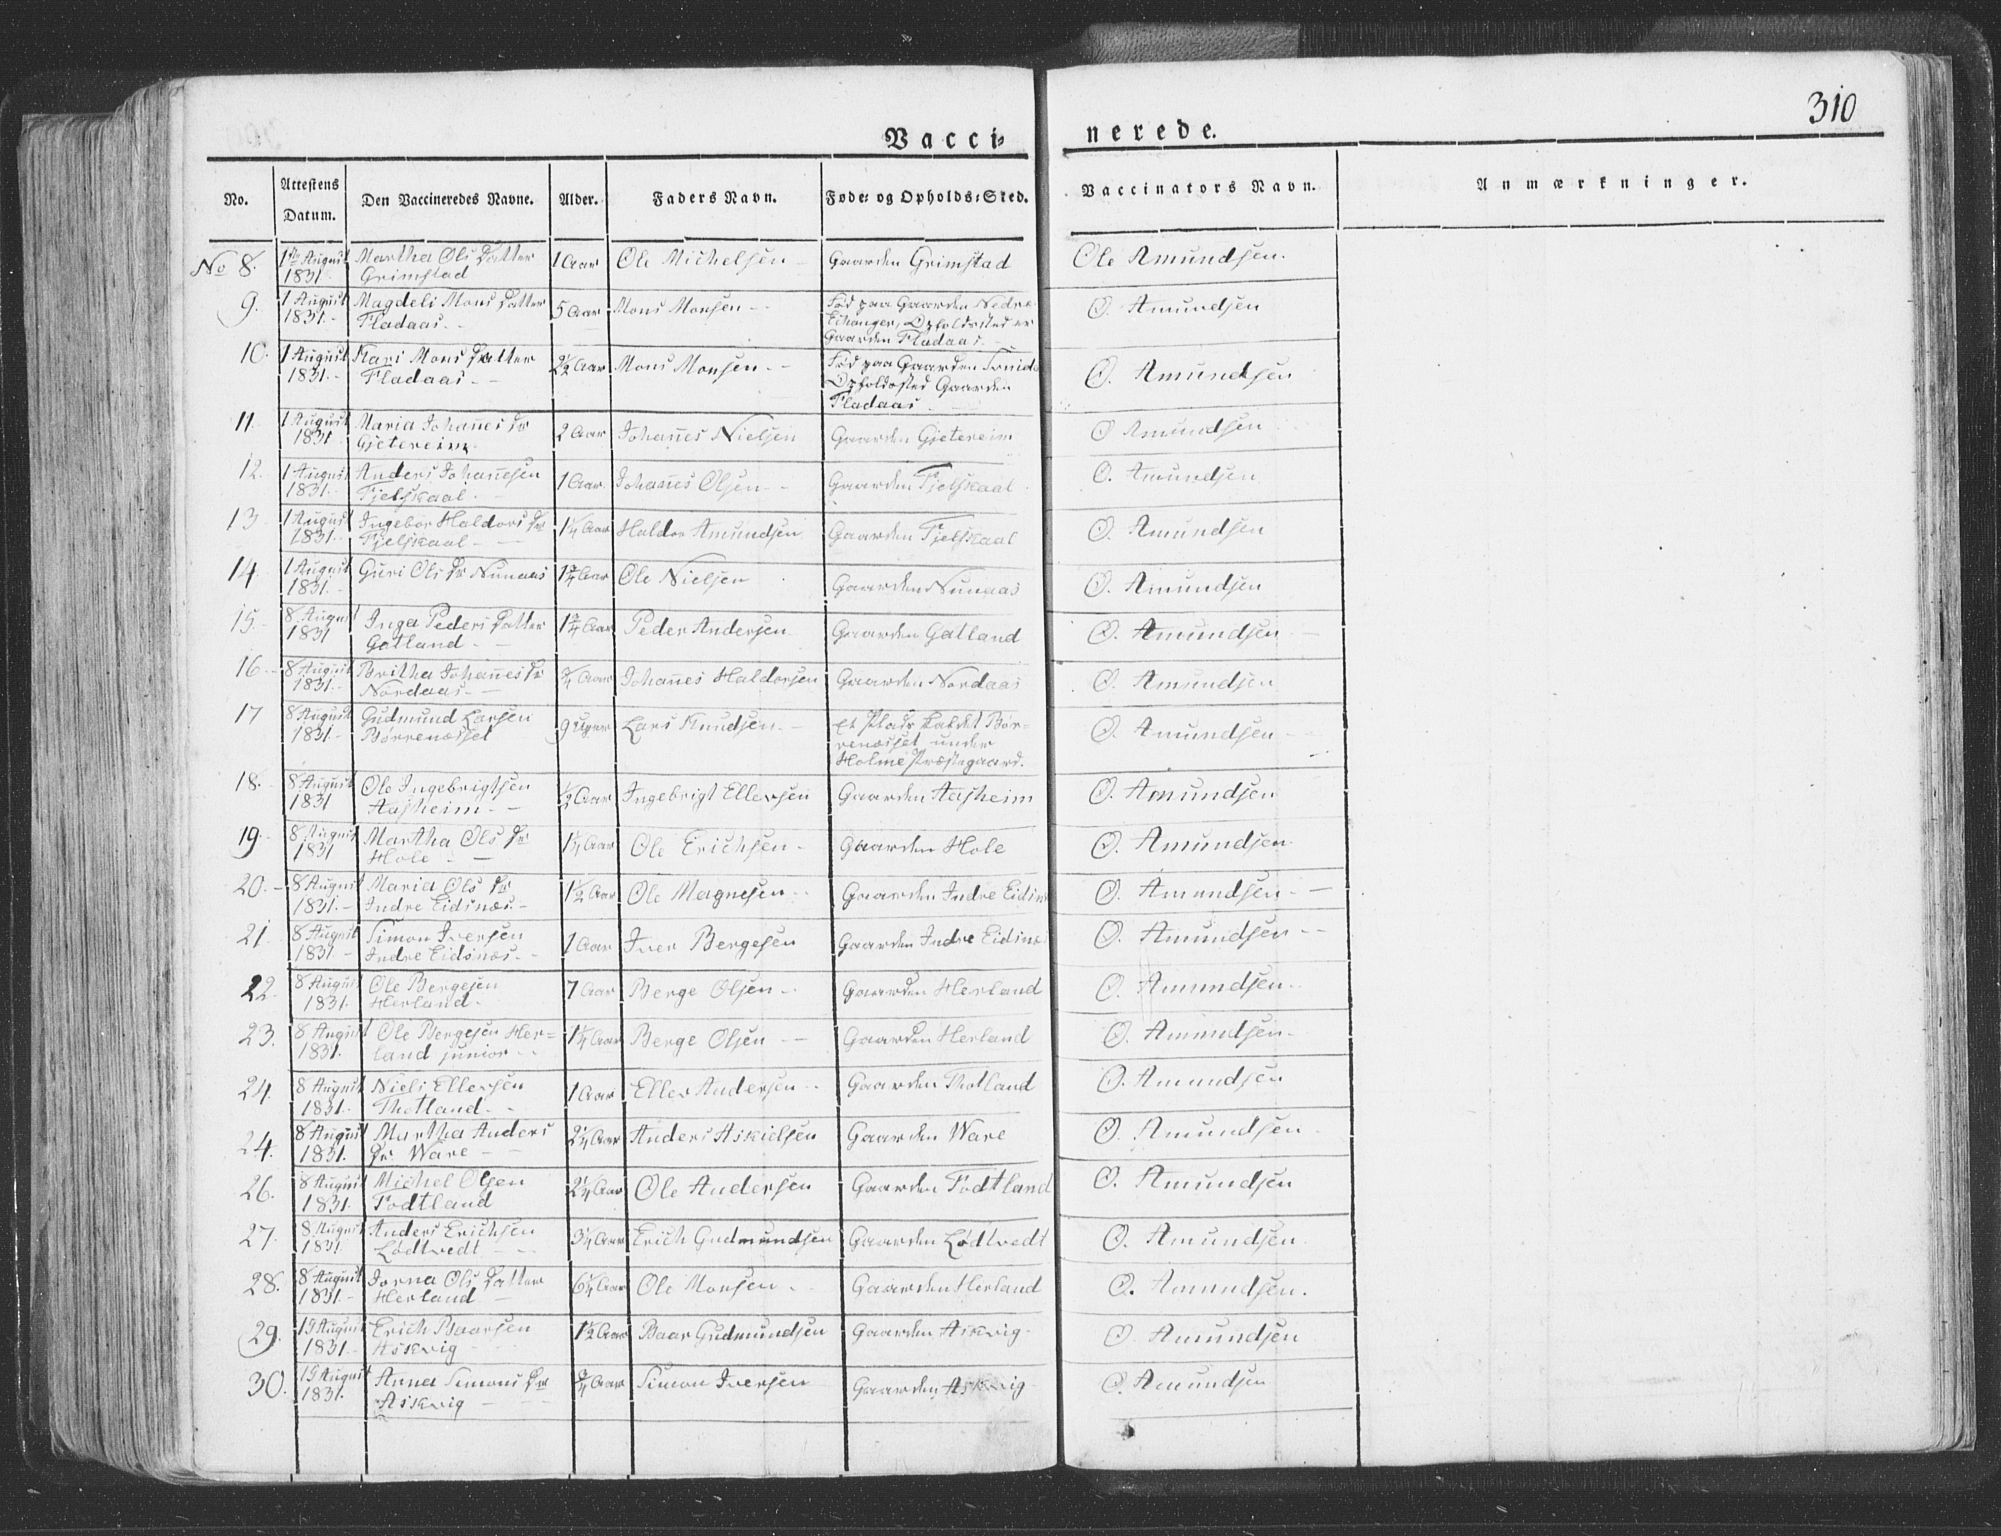 310
Vacci-
nerede.
No.
Attestens Datum.
Den Vaccineredes Navne.
Alder.
Faders Navn.
Føde- og Opholds-Sted.
Vaccinators Navn.
Anmærkninger.
No 8. 1te August 1831 Martha Ols Datter Grimstad 1 Aar Ole Michelsen Gaarden Grimstad Ole Amundsen.
9. 1 August 1831. Magdeli Mons Datter Fladaas 5 Aar Mons Monsen Fød paa Gaarden Nedre Echanger, Opholdssted er Gaarden Fladaas O. Amundsen
10. 1 August 1831. Kari Mons Datter Fladaas 2½ Aar Mons Monsen Fød paa Gaarden Opholdssted Gaarden Fladaas O. Amundsen
11. 1 August 1831 Maria Johañes Dr Gjetereim 2 Aar Johañes Nielsen Gaarden Gjetereim O Amundsen
12. 1 August 1831. Anders Johañesen Fjelskaal 1 Aar Johañes Olsen Gaarden Fjelskaal O. Amundsen
13 1 August 1831. Ingebor Haldors Dr Fjelskaal 1¼ Aar Haldor Amundsen Gaarden Fjelskaal O. Amundsen
14 1 August 1831. Guri Ols Dr Nunaas 1¾ Aar Ole Nielsen Gaarden Nunaas O. Amundsen
15. 8 August 1831 Inga Peders Datter Gatland 1¾ Aar Peder Andersen Gaarden Gatland O. Amundsen
16 8 August 1831. Britha Johañes Dr Nordaas ¾ Aar Johañes Haldorsen Gaarden Nordaas O. Amundsen
17 8 August 1831. Gudmund Larsen Børrenæsset 9 Uger Lars Knudsen Et Plads kaldet Børrenæsset under Holme Præstegaard. O. Amundsen
18. 8 August 1831 Ole Ingebrigtsen Aasheim ½ Aar Ingebrigt Ellersen Gaarden Aasheim O. Amundsen
19 8 August 1831 Martha Ols Dr Hole 1¼ Aar Ole Erichsen Gaarden Hole O. Amundsen
20. 8 August 1831. Maria Ols Dr Indre Eidsnæs 1½ Aar Ole Magnesen Gaarden Indre O. Amundsen
21. 8 August 1831. Simon Iversen Indre Eidsnæs 1 Aar Iver Bergesen Gaarden Indre O. Amundsen
22. 8 August 1831. Ole Bergesen Herland 7 Aar Berge Olsen Gaarden Herland O. Amundsen
23. 8 August 1831. Ole Bergesen Herland junior 1¼ Aar Berge Olsen Gaarden Herland O. Amundsen
24. 8 August 1831. Niels Ellersen Thotland 1 Aar Eller Andersen Gaarden Thotland O. Amundsen
24. 8 August 1831. Martha Anders Dr Ware 2¼ Aar Anders Askielsen Gaarden Ware O. Amundsen
26. 8 August 1831. Michel Olsen Fodtland 2¼ Aar Ole Andersen Gaarden Fodtland O. Amundsen
27. 8 August 1831 Anders Erichsen Lødtvedt 3¼ Aar Erich Gudmundsen Gaarden Lødtvedt O. Amundsen
28. 8 August 1831. Jorna Ols Datter Herland 6¼ Aar Ole Monsen Gaarden Herland O. Amundsen.
29. 15 August 1831. Erich Baarsen Askvig 1½ Aar Baar Gudmundsen Gaarden Askvig O. Amundsen
30. 15 August 1831. Anna Simons Dr Askvig ¾ Aar Simon Iversen Gaarden Askvig O. Amundsen